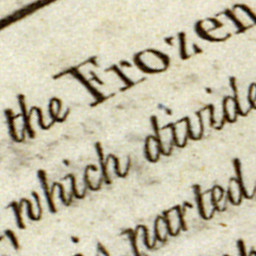 the Frozen
, which divide
is parted